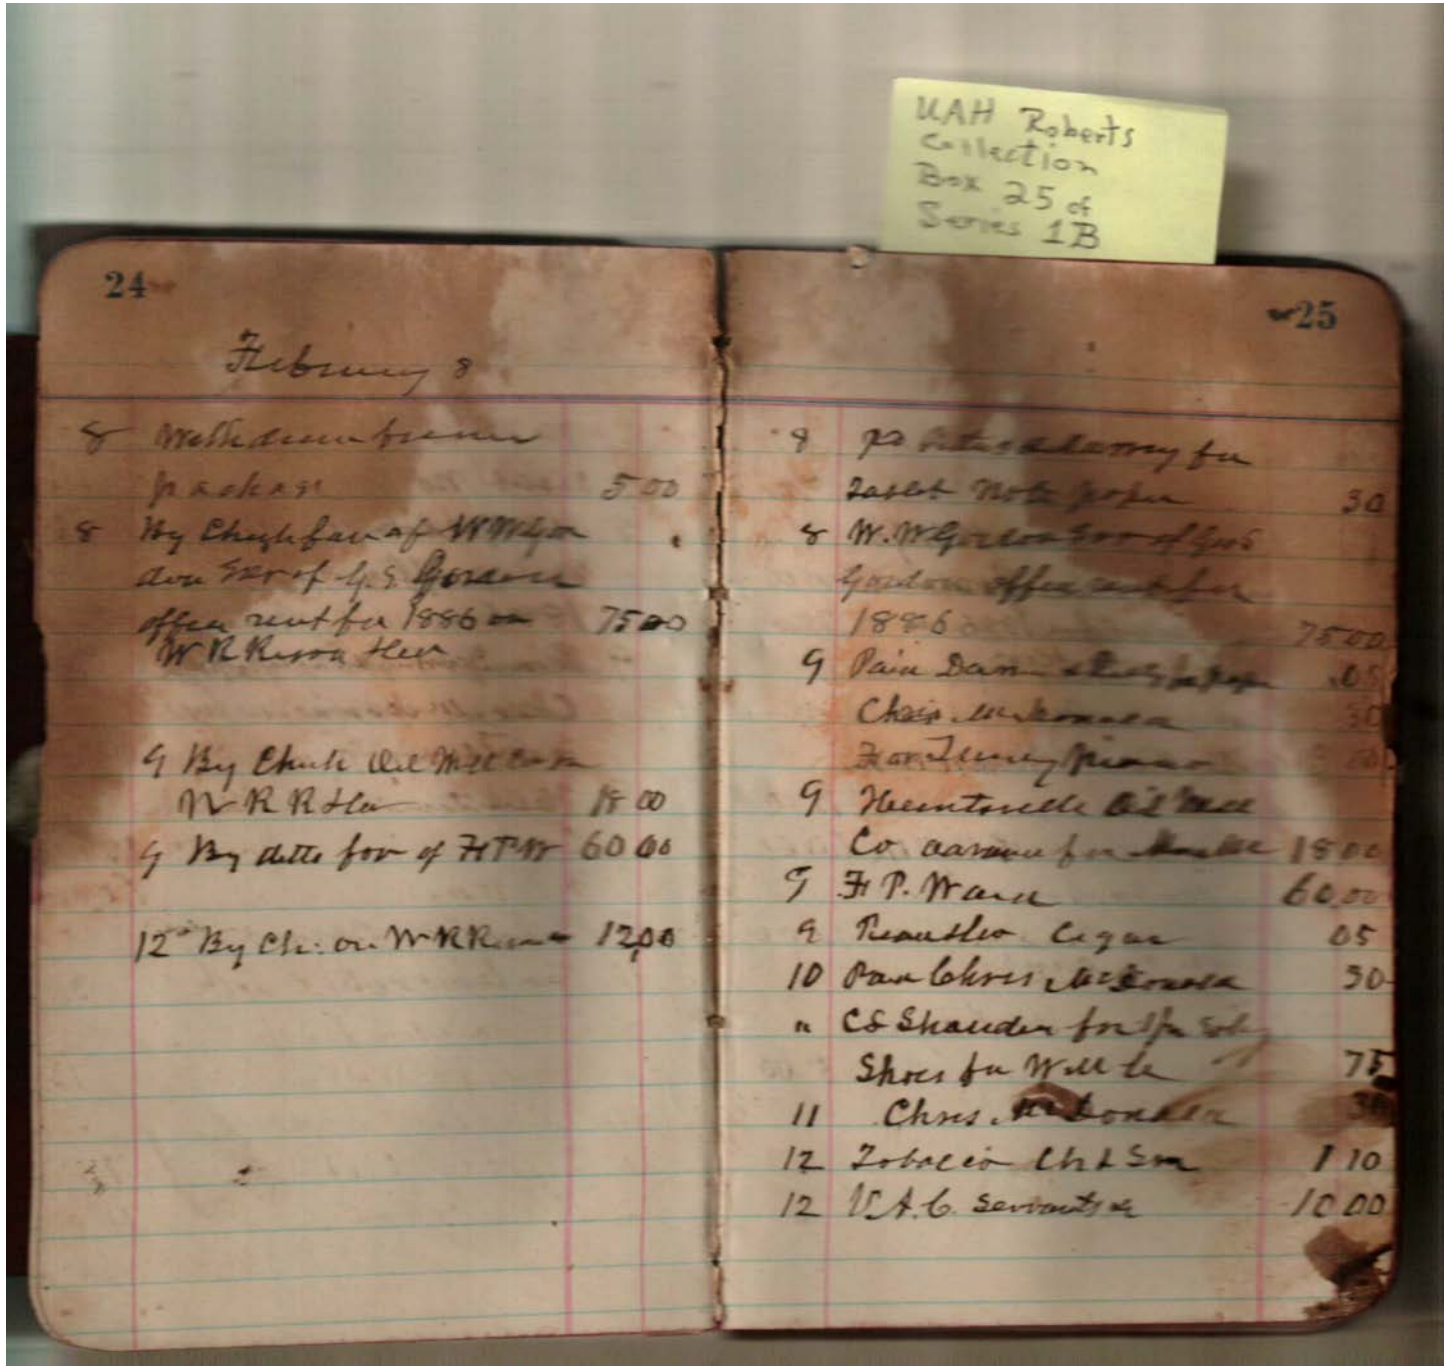 UAH Roberts
Collection
Box 25 of
Series 1B
24
February 8
8 Withdrawn from
package 5 00
8 By Check fav of W W Gor
don Exr of G. S. Gordon
office rent for 1886 on 75 00
W R Rison &
9 By Check Oil Mill Co on
W R R & 18 00
9 By ditto fav of F P W 60 00
12 By Ch: on W R Rison 12,00
25
8 pd for
Tablet Note paper 30
8 W. W Gordon Exr of Geo S
Gordon office rent for
1886 75 00
9 Paid for paper .05
Chris McDonald 30
For piano
9 Huntsville Oil Mill
Co for 18 00
9 F P. Ward 60 00
9 Cigar 05
10 Paid Chris McDonald 30
" C S for
Shoes for Willie 75
11 Chris McDonald 30
12 Tobacco Ch & Sm 1 10
12 V. A. C. servants &c 10 00